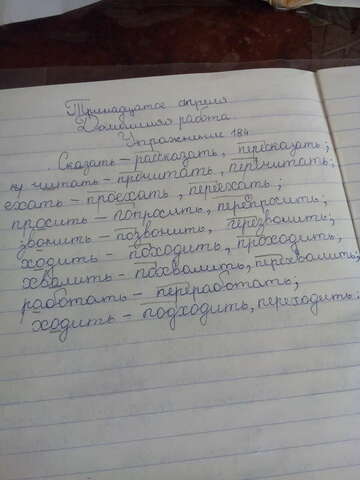 Тринадцатое апреля
Домашняя работа.
Упражнение 184
Сказать – рассказать, пересказать;
читать – прочитать, перечитать;
ехать – проехать, переехать;
просить – попросить, перепросить;
звонить – позвонить, перезвонить;
ходить – походить, проходить,
хвалить – похвалить, перехвалить;
работать – переработать;
ходить – подходить, переходить.